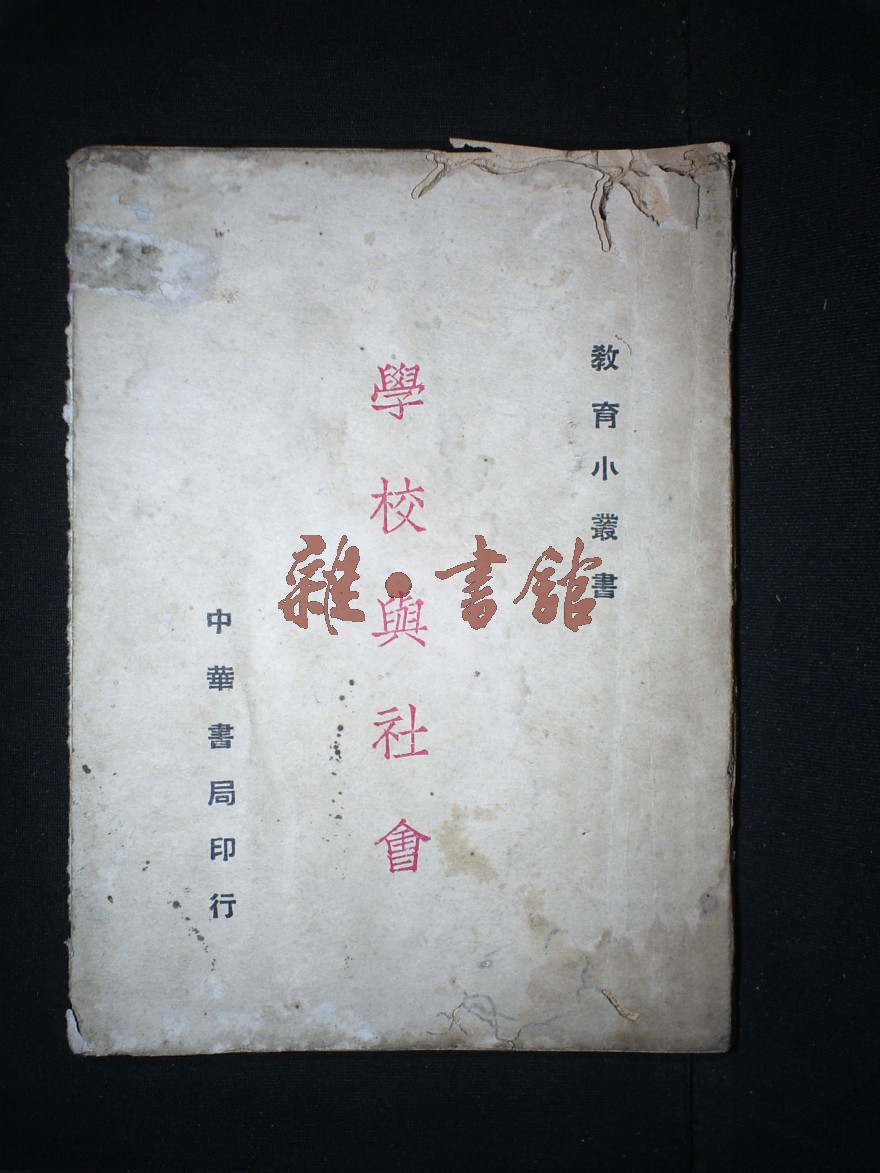 教育小叢書
學校與社會
中華書局印行
雜·書館